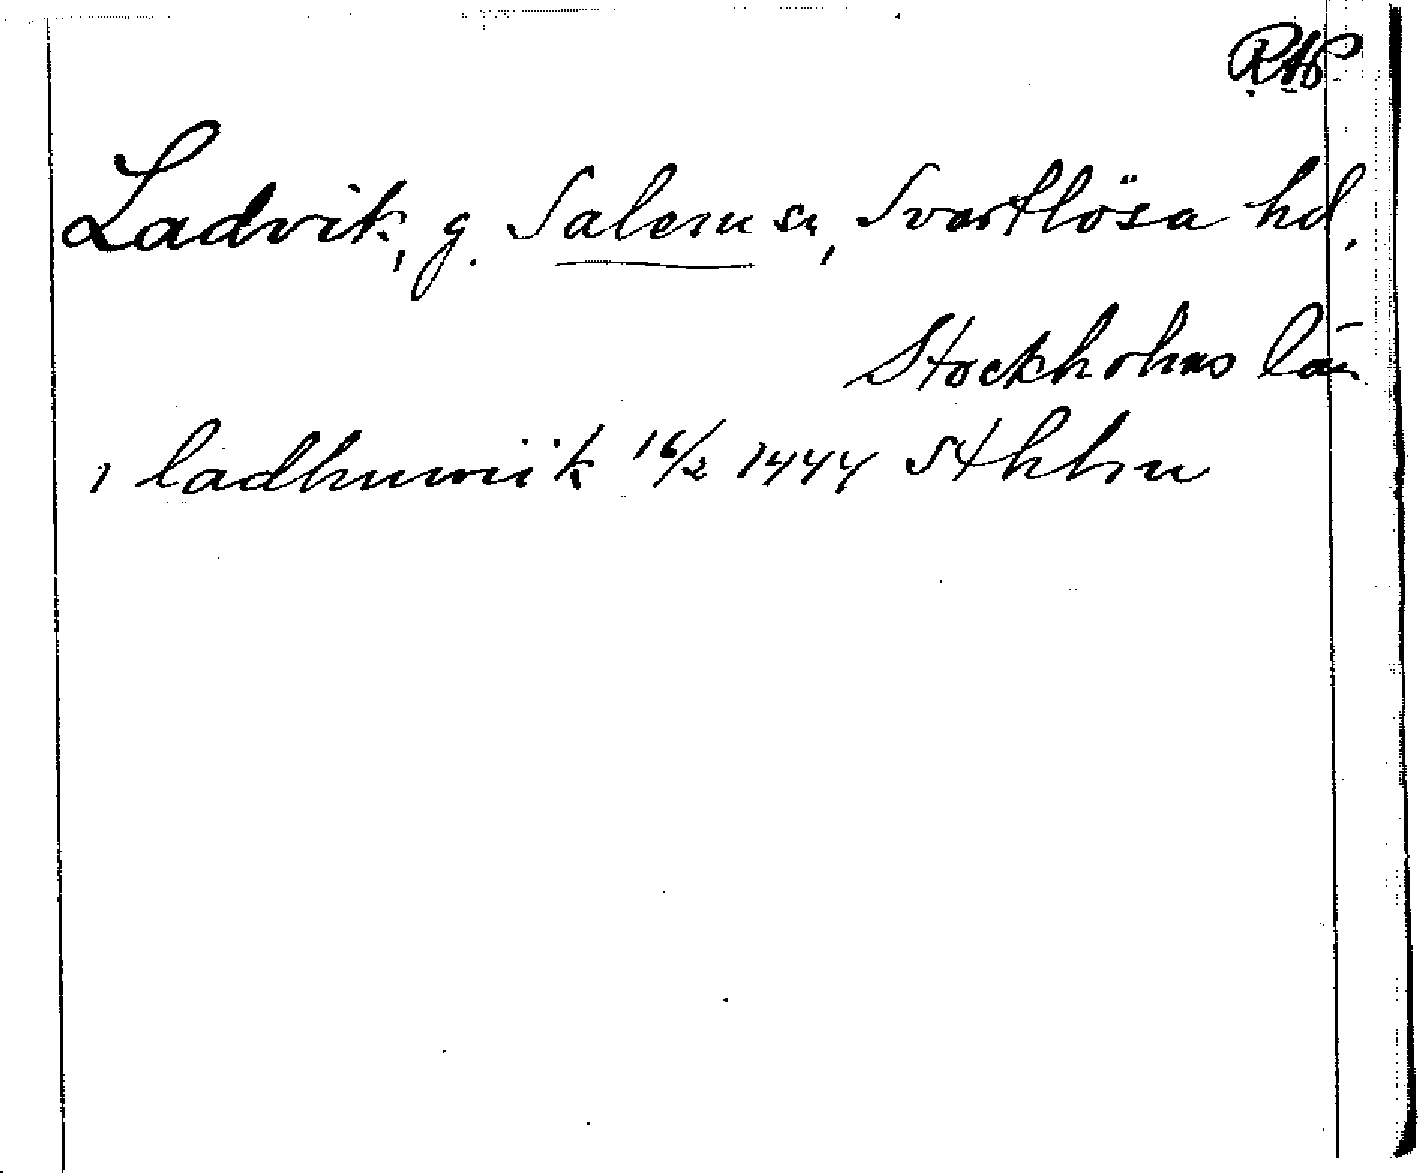 RAp
Ladvik, g. Salems sn, Svartlösa hd.
Stockholms län
i ladhuwiik 16/2 1444 Sthlm